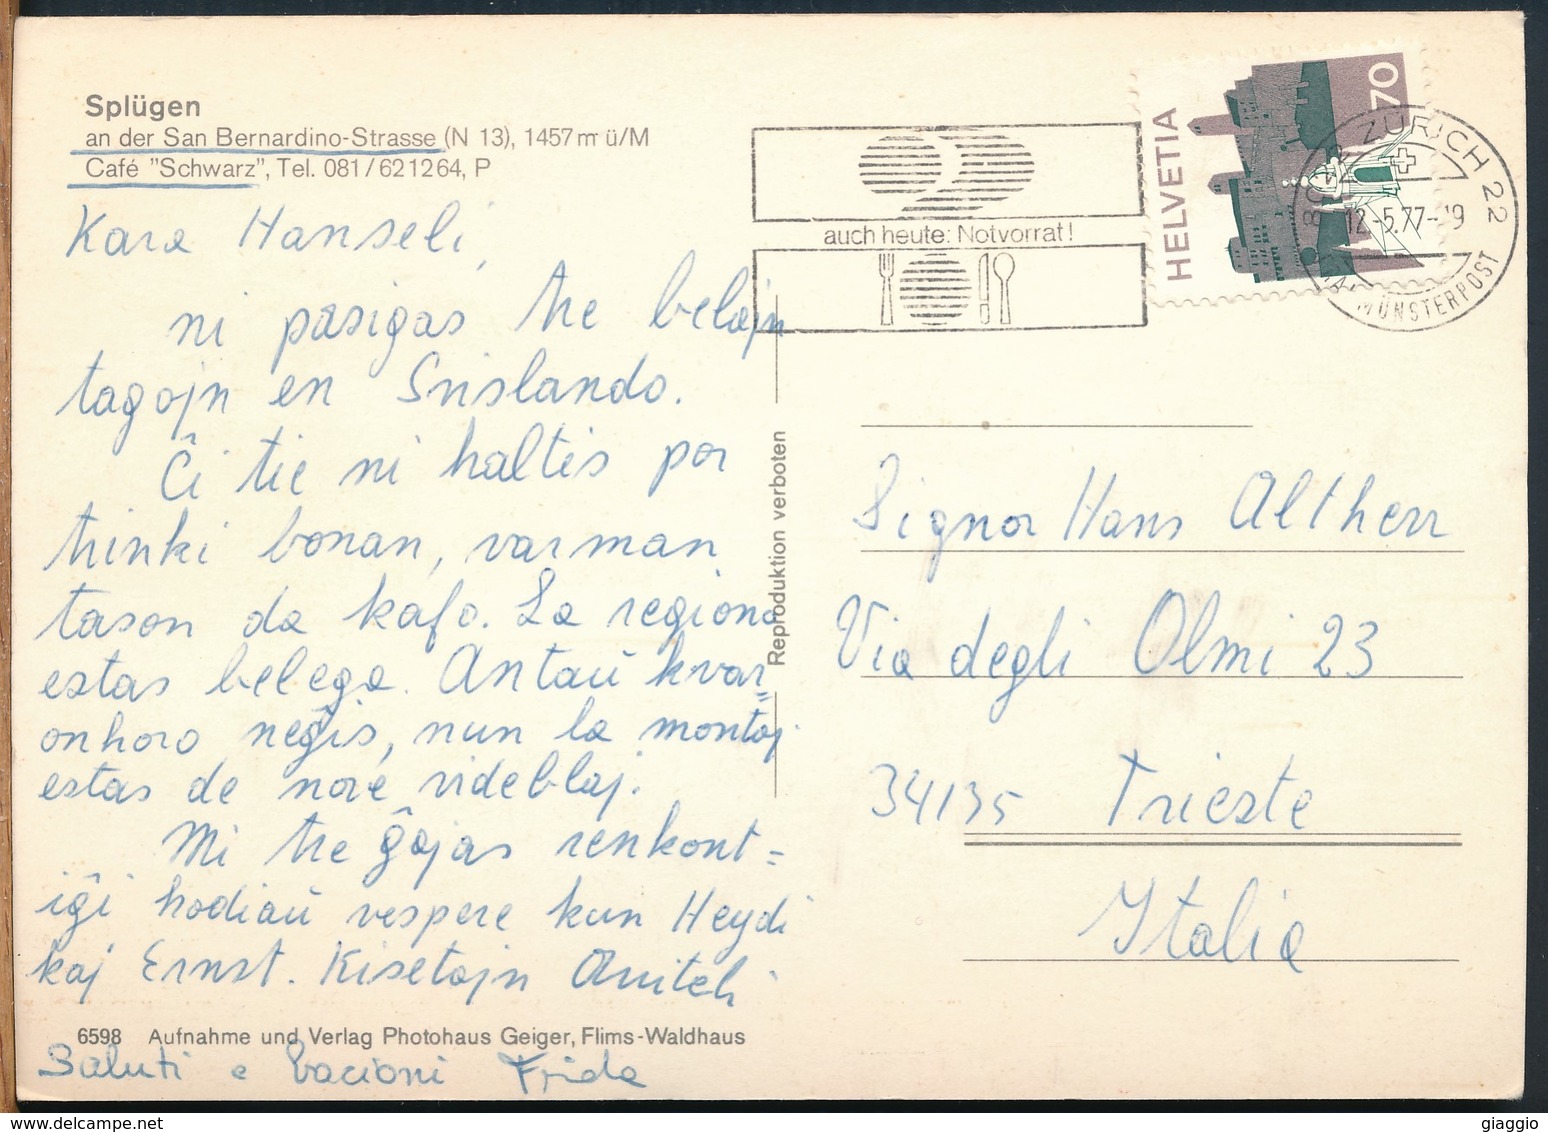 Splügen
an der San Bernardino-Strasse (N 13), 1457 m ü/M
Café "Schwarz", Tel. 081/621264, P
Kara Hanseli,
ni pasigas tre belajn
tagojn en Svislando.
Ĉi tie ni haltis por
trinki bonan, varman
tason da kafo. La regiono
estas belega. Antaŭ kvar=
onhoro neĝis, nun la montoj
estas de nove videblaj.
Mi tre ĝojas renkont=
iĝi hodiaŭ vespere kun Heydi
kaj Ernst. Kisetojn Aniteli
6598 Aufnahme und Verlag Photohaus Geiger, Flims-Waldhaus
Saluti e bacioni Frida
Reproduktion verboten
auch heute: Notvorrat!
HELVETIA
70
ZÜRICH 22
12.-5.77-19
MÜNSTERPOST
Signor Hans Altherr
Via degli Olmi 23
34135 Trieste
Italia
giaggio